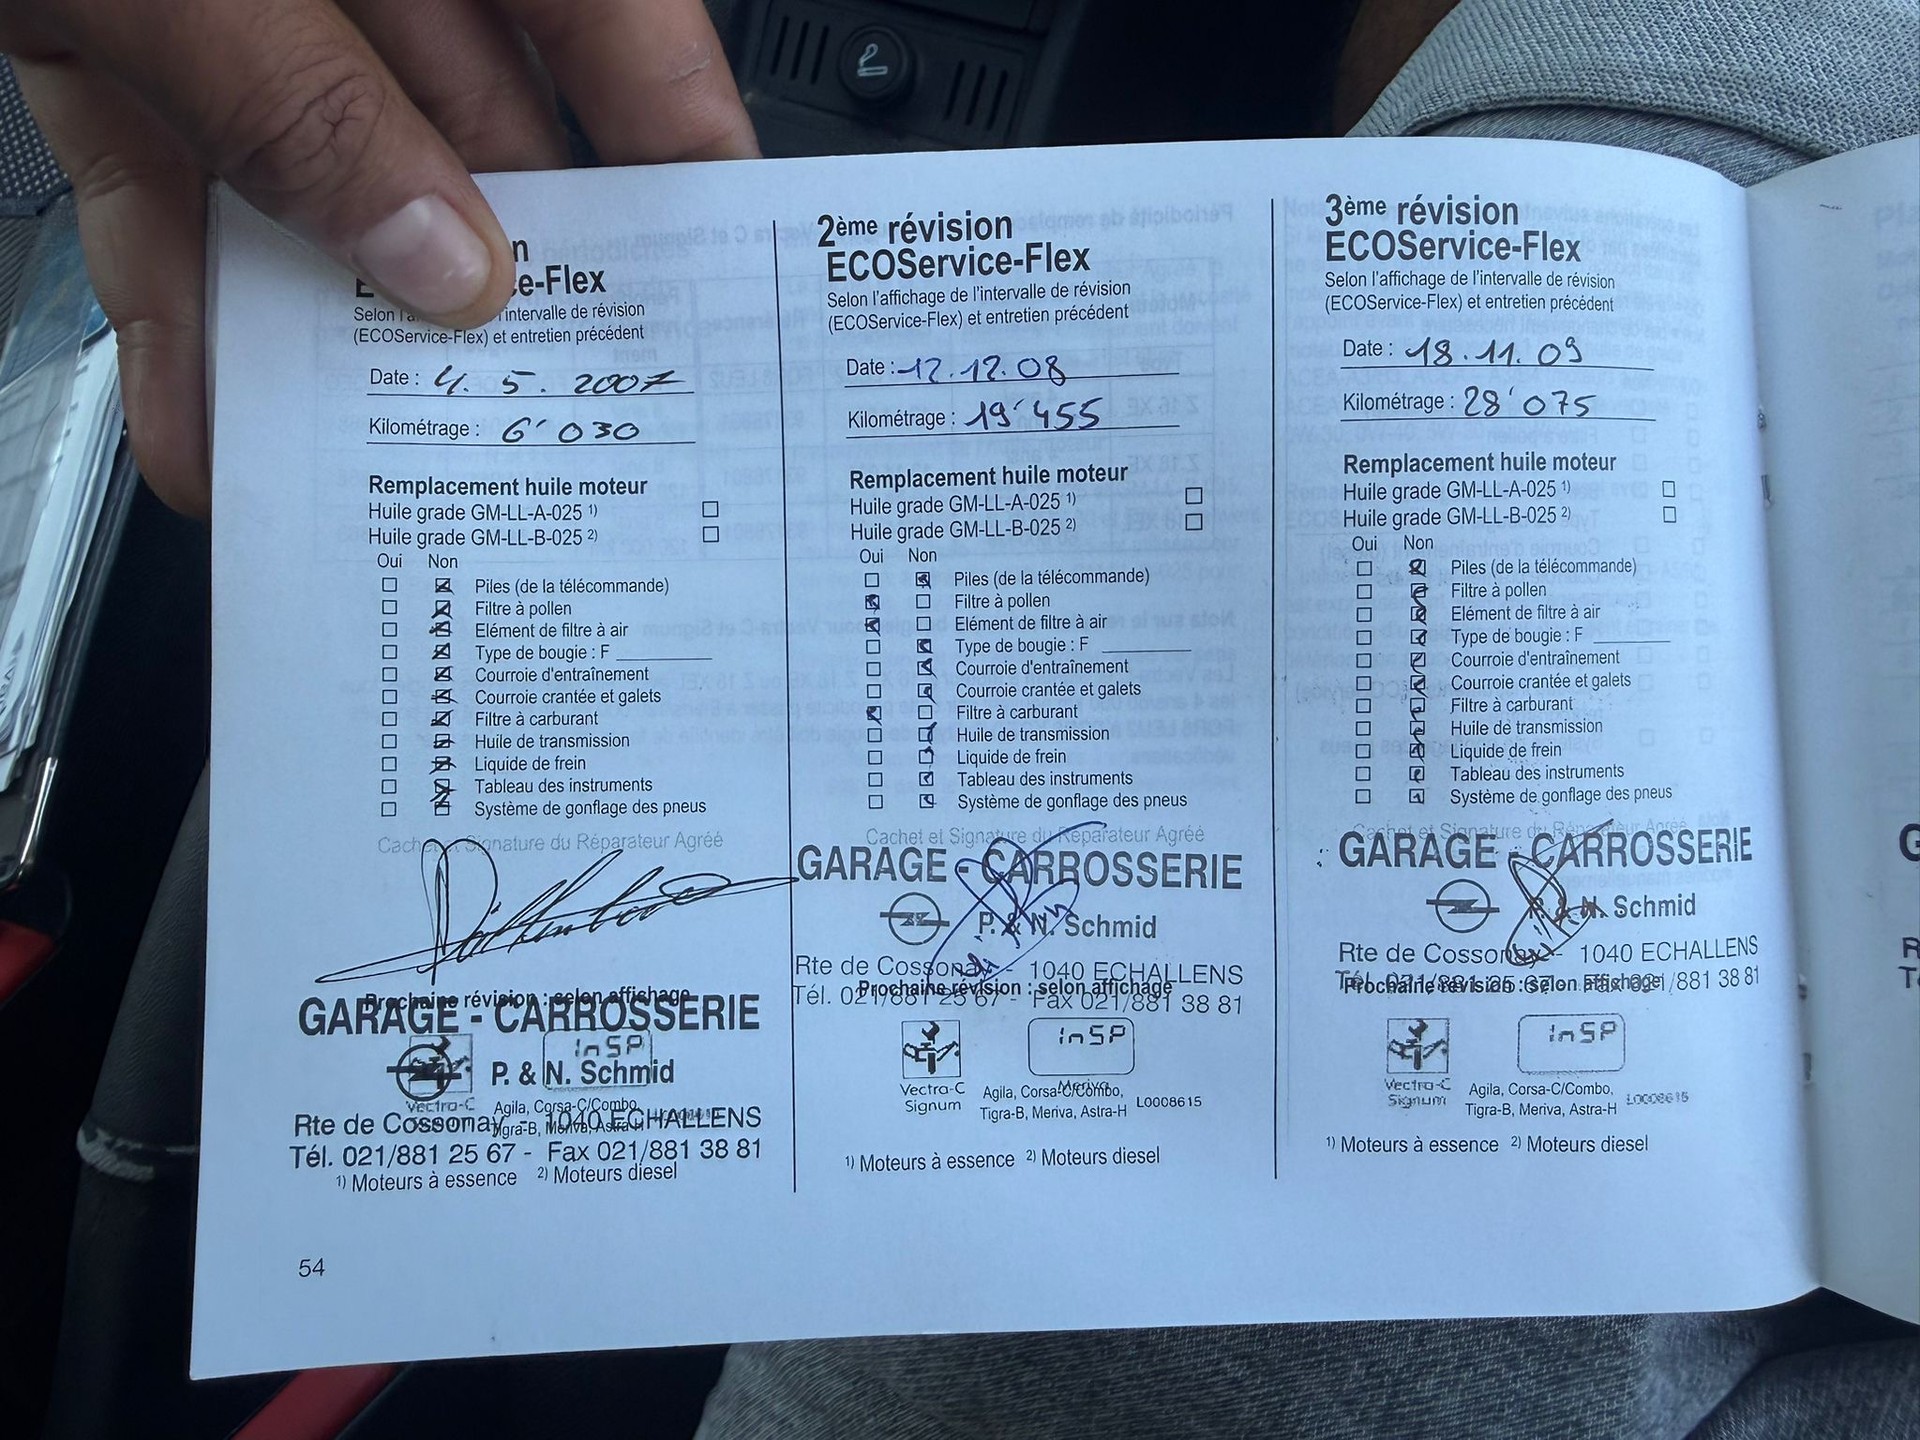 n
e-Flex
Selon l'intervalle de révision
(ECOService-Flex) et entretien précédent
Date : 4. 5. 2007
Kilométrage : 6' 030
Remplacement huile moteur
Huile grade GM-LL-A-025 1)
Huile grade GM-LL-B-025 2)
Oui Non
Piles (de la télécommande)
Filtre à pollen
Elément de filtre à air
Type de bougie : F
Courroie d'entraînement
Courroie crantée et galets
Filtre à carburant
Huile de transmission
Liquide de frein
Tableau des instruments
Système de gonflage des pneus
Cachet et Signature du Réparateur Agréé
Prochaine révision : selon affichage
GARAGE - CARROSSERIE
InSP
P. & N. Schmid
Vectra-C
Agila, Corsa-C/Combo,
Tigra-B, Meriva, Astra-H
Rte de Cossonay - 1040 ECHALLENS
Tél. 021/881 25 67 - Fax 021/881 38 81
1) Moteurs à essence 2) Moteurs diesel
54
2ème révision
ECOService-Flex
Selon l'affichage de l'intervalle de révision
(ECOService-Flex) et entretien précédent
Date : 12.12.08
Kilométrage : 19'455
Remplacement huile moteur
Huile grade GM-LL-A-025 1)
Huile grade GM-LL-B-025 2)
Oui Non
Piles (de la télécommande)
Filtre à pollen
Elément de filtre à air
Type de bougie : F
Courroie d'entraînement
Courroie crantée et galets
Filtre à carburant
Huile de transmission
Liquide de frein
Tableau des instruments
Système de gonflage des pneus
Cachet et Signature du Réparateur Agréé
GARAGE - CARROSSERIE
P. & N. Schmid
Rte de Cossonay - 1040 ECHALLENS
Prochaine révision : selon affichage
Tél. 021/881 25 67 - Fax 021/881 38 81
InSP
Vectra-C
Signum
Agila, Corsa-C/Combo,
Meriva
Tigra-B, Meriva, Astra-H
L0008615
1) Moteurs à essence 2) Moteurs diesel
3ème révision
ECOService-Flex
Selon l'affichage de l'intervalle de révision
(ECOService-Flex) et entretien précédent
Date : 18.11.09
Kilométrage : 28'075
Remplacement huile moteur
Huile grade GM-LL-A-025 1)
Huile grade GM-LL-B-025 2)
Oui Non
Piles (de la télécommande)
Filtre à pollen
Elément de filtre à air
Type de bougie : F
Courroie d'entraînement
Courroie crantée et galets
Filtre à carburant
Huile de transmission
Liquide de frein
Tableau des instruments
Système de gonflage des pneus
Cachet et Signature du Réparateur Agréé
GARAGE - CARROSSERIE
P. & N. Schmid
Rte de Cossonay - 1040 ECHALLENS
Tél. 021/881 25 67 - Fax 021/881 38 81
Prochaine révision : selon affichage
InSP
Vectra-C
Signum
Agila, Corsa-C/Combo,
Tigra-B, Meriva, Astra-H
L0008615
1) Moteurs à essence 2) Moteurs diesel